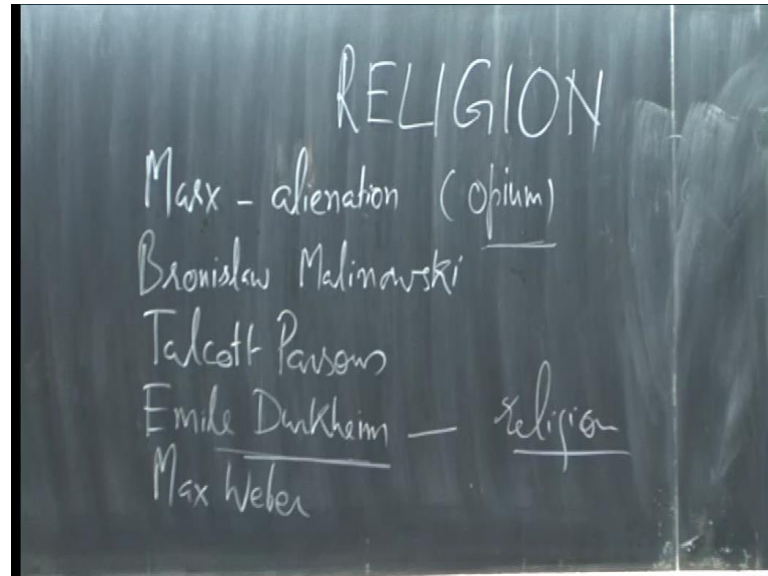 RELIGION
Marx - alienation (opium)
Bronislaw Malinowski
Talcott Parsons
Emile Durkheim — religion
Max Weber